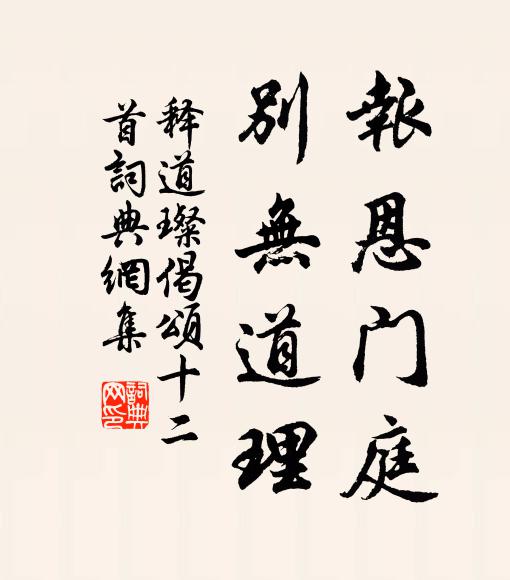 報恩门庭
別無道理
释道璨偈頌十二
首詞典網集
詞典网印